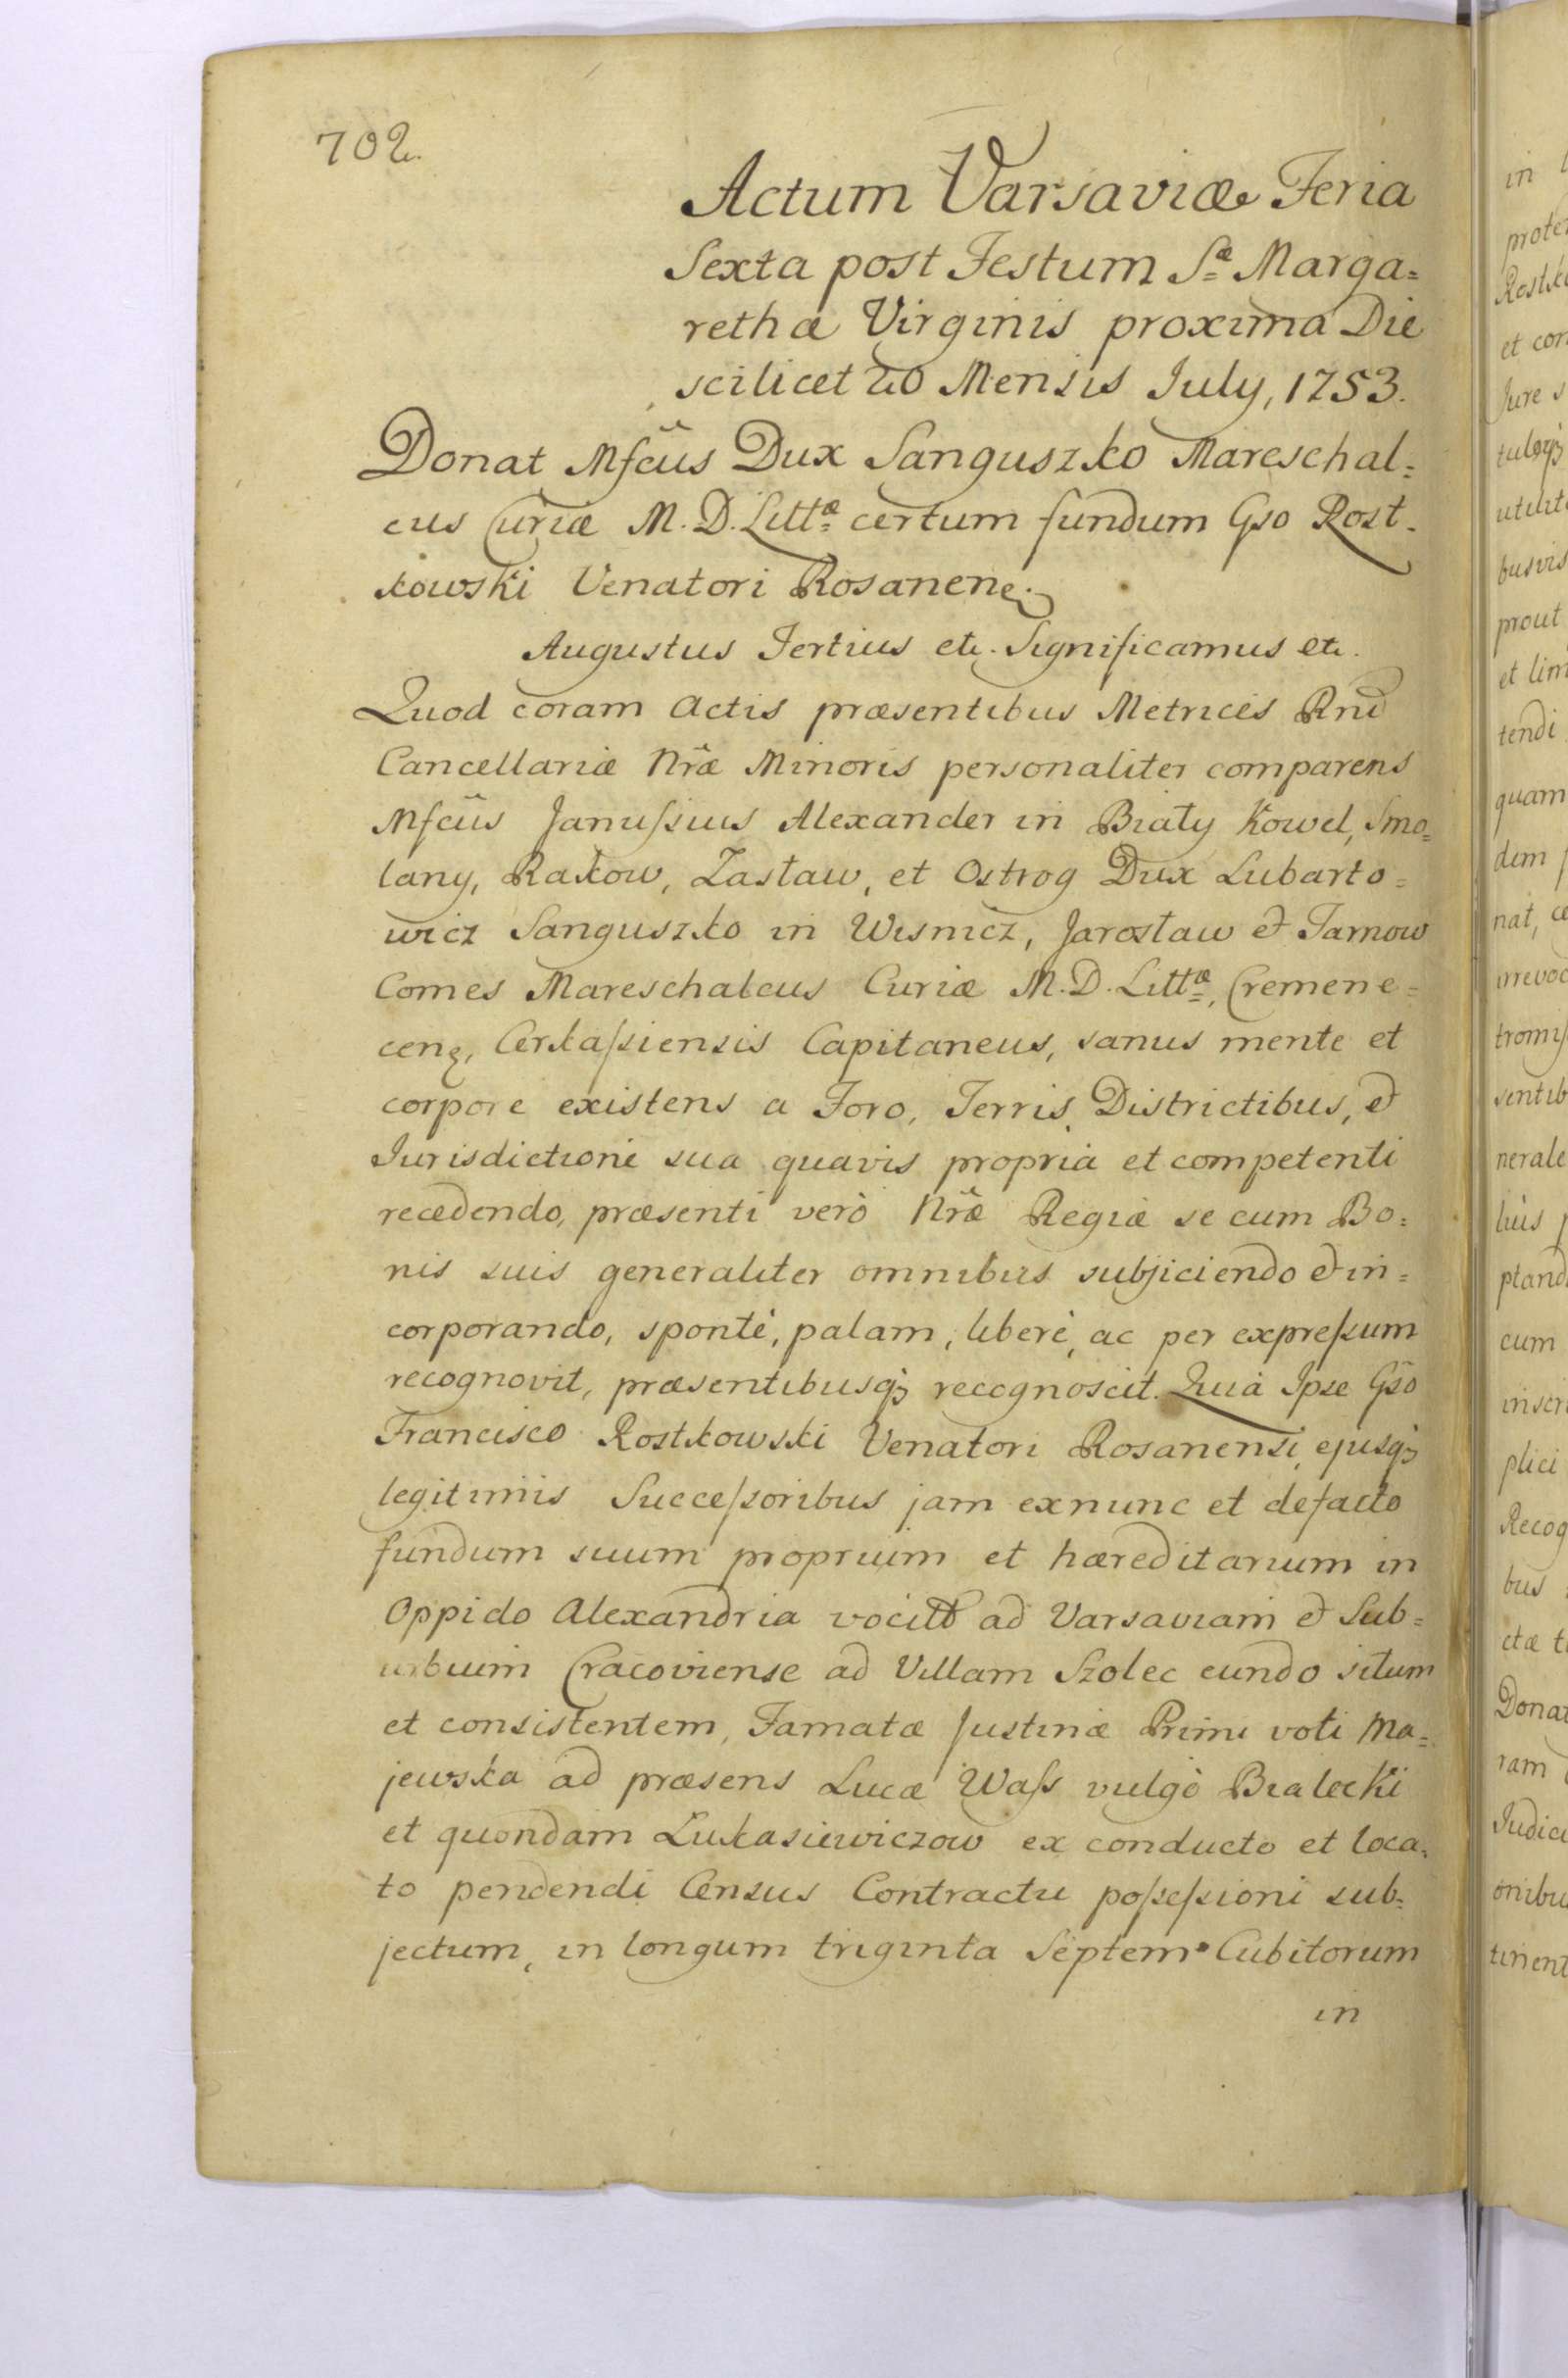 702.
Actum Varsaviæ Feria
Sexta post Festum Sæ Marga=
rethæ Virginis proxima Die
scilicet 20 Mensis July, 1753.
Donat Mfcūs Dux Sanguszko Mareschal=
cus Curiæ M. D. Littæ certum fundum Gso Rost-
kowski Venatori Rosanenę.
Augustus Tertius etc. Significamus etc.
Quod coram Actis præsentibus Metrices Rnī
Cancellariæ Nræ̃ Minoris personaliter comparens
Mfcūs Janufsius Alexander in Biały Kowel, Smo=
lany, Rakow, Zasław, et Ostrog Dux Lubarto=
wicz Sanguszko in Wisnicz, Jarosław et Tarnow
Comes Mareschalcus Curiæ M. D. Littæ, Cremene=
cenę, Cerkafsiensis Capitaneus, sanus mente et
corpore existens a Foro, Terris, Districtibus, et
Jurisdictione sua quavis propria et competenti
recedendo, præsenti verò Nræ̃ Regiæ se cum Bo=
nis suis generaliter omnibus subjiciendo et in=
corporando, spontè, palam, liberè, ac per exprefsum
recognovit, præsentibusq́ȝ recognoscit. Quia Ipse Gsō
Francisco Rostkowski Venatori Rosanensi, ejusq́ȝ
legitimis Succefsoribus jam exnunc et defacto
fundum suum proprium et hæreditarium in
Oppido Alexandria vocitt ad Varsaviam et Sub=
urbium Cracoviense ad Villam Szolec eundo situm
et consistentem, Famatæ Justinæ Primi voti Ma=
jewska ad præsens Lucæ Wafs vulgò Bialecki
et quondam Lukasiewiczow ex conducto et loca=
to pendendi Census Contractu pofsefsioni sub=
jectum, in longum triginta Septem Cubitorum
in